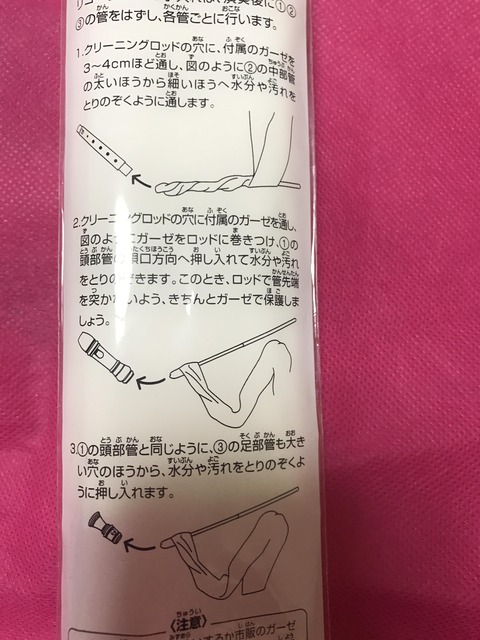 リコーダーのお手入れは、演奏後に①②
③の管をはずし、各管ごとに行います。
1.クリーニングロッドの穴に、付属のガーゼを
3~4cmほど通し、図のように②の中部管
の太いほうから細いほうへ水分や汚れを
とりのぞくように通します。
2.クリーニングロッドの穴に付属のガーゼを通し、
図のようにガーゼをロッドに巻きつけ、①の
頭部管の唄口方向へ押し入れて水分や汚れ
をとりのぞきます。このとき、ロッドで管先端
を突かないよう、きちんとガーゼで保護しま
しょう。
3.①の頭部管と同じように、③の足部管も大き
い穴のほうから、水分や汚れをとりのぞくよ
うに押し入れます。
〈注意〉
するか市販のガーゼ